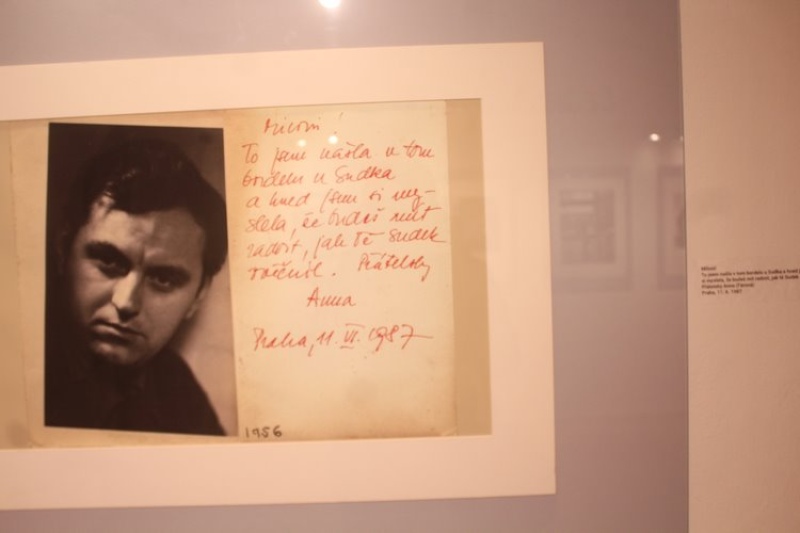 Miloši!
To jsem našla v tom
bordelu u Sudka
a hned jsem si my-
slela, že budeš mít
radost, jak tě Sudek
zvěčnil. Přátelsky
Anna
Praha, 11. VI. 1987
1956
Miloši!
To jsem našla v tom bordelu u Sudka a hned
si myslela, že budeš mít radost, jak tě Sudek
Přátelsky Anna (Fárová)
Praha, 11. 6. 1987